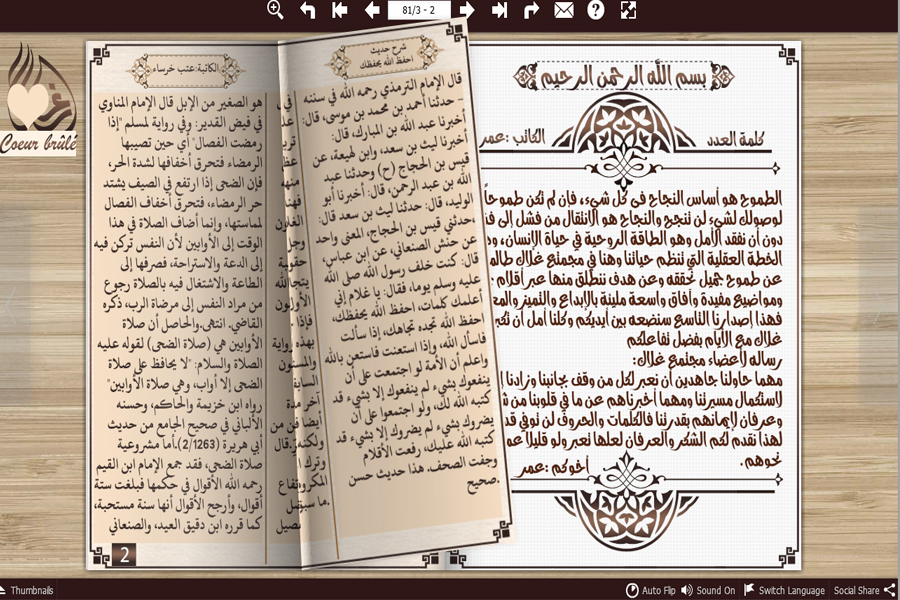 81/3 - 2
Coeur brûlé
بسم الله الرحمن الرحيم
كلمة العدد
الكاتب :عمر
الطموح هو أساس النجاح في كل شيء، فإن لم تكن طموحاً
لوصولك لشيء لن تنجح والنجاح هو الانتقال من فشل إلى
دون أن نفقد الأمل وهو الطاقة الروحية في حياة الإنسان،
الخطة العقلية التي تنظم حياتنا وهنا في مجتمع غلاك
عن طموح جميل نحققه وعن هدف ننطلق منها عبر أقلام
ومواضيع مفيدة وآفاق واسعة مليئة بالإبداع والتميز
فهذا إصدارنا التاسع سنضعه بين أيديكم وكلنا أمل أن
غلاك مع الأيام بفضل تفاعلكم
رسالة لأعضاء مجتمع غلاك:
مهما حاولنا جاهدين أن نعبر لكل من وقف بجانبنا وزادنا
لاستكمال مسيرتنا ومهما أخبرناهم عن ما في قلوبنا من
وعرفان لإيمانهم بقدرتنا فالكلمات والحروف لن توفي
لهذا نقدم لكم الشكر والعرفان لعلها نعبر ولو قليلا
نحوهم.
أخوكم :عمر
شرح حديث
احفظ الله يحفظك
قال الإمام الترمذي رحمه الله في سننه
حدثنا أحمد بن محمد بن موسى، قال:
أخبرنا عبد الله بن المبارك، قال:
أخبرنا ليث بن سعد، وابن لهيعة، عن
قيس بن الحجاج (ح) وحدثنا عبد
الله بن عبد الرحمن، قال: أخبرنا أبو
الوليد، قال: حدثنا ليث بن سعد قال:
حدثني قيس بن الحجاج، المعنى واحد
عن حنش الصنعاني، عن ابن عباس،
قال: كنت خلف رسول الله صلى الله
عليه وسلم يوما، فقال: يا غلام إني
أعلمك كلمات، احفظ الله يحفظك،
احفظ الله تجده تجاهك، إذا سألت
فاسأل الله، وإذا استعنت فاستعن بالله
واعلم أن الأمة لو اجتمعت على أن
ينفعوك بشيء لم ينفعوك إلا بشيء قد
كتبه الله لك، ولو اجتمعوا على أن
يضروك بشيء لم يضروك إلا بشيء قد
كتبه الله عليك، رفعت الأقلام
وجفت الصحف. هذا حديث حسن
صحيح.
الكاتبة:عتب خرساء
هو الصغير من الإبل قال الإمام المناوي
في فيض القدير: وفي رواية لمسلم "إذا
رمضت الفصال" أي حين تصيبها
الرمضاء فتحرق أخفافها لشدة الحر،
فإن الضحى إذا ارتفع في الصيف يشتد
حر الرمضاء، فتحرق أخفاف الفصال
لمماستها، وإنما أضاف الصلاة في هذا
الوقت إلى الأوابين لأن النفس تركن فيه
إلى الدعة والاستراحة، فصرفها إلى
الطاعة والاشتغال فيه بالصلاة رجوع
من مراد النفس إلى مرضاة الرب، ذكره
القاضي. انتهى.والحاصل أن صلاة
الأوابين هي (صلاة الضحى) لقوله عليه
الصلاة والسلام: "لا يحافظ على صلاة
الضحى إلا أواب، وهي صلاة الأوابين"
رواه ابن خزيمة والحاكم، وحسنه
الألباني في صحيح الجامع من حديث
أبي هريرة (2/1263).أما مشروعية
صلاة الضحى، فقد جمع الإمام ابن القيم
رحمه الله الأقوال في حكمها فبلغت ستة
أقوال، وأرجح الأقوال أنها سنة مستحبة،
كما قرره ابن دقيق العيد، والصنعاني
2
Thumbnails
Auto Flip
Sound On
Switch Language
Social Share